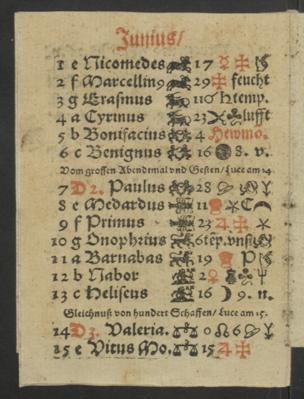 Junius/
1 e Nicomedes 17 ☿
2 f Marcellin9 29 feucht
3 g Erasmus 110 ♄ temp.
4 a Cyrinus 23 lufft
5 b Bonifacius 4 Newmo.
6 c Benignus 16 8. v.
Vom grossen Abendemal vnd Gesten / Luce am 14
7 D 2. Paulus 28
8 e Medardus 11 C
9 f Primus 23
10 g Onophrius 6 tēp. vnst
11 a Barnabas 19 P
12 b Nabor 2 ♀
13 c Heliseus 16 ☽ 9. n.
Gleichnuß von hundert Schaffen / Luce am 15.
14 D 3. Valeria. 0 6
15 e Vitus Mo. 15 ♃